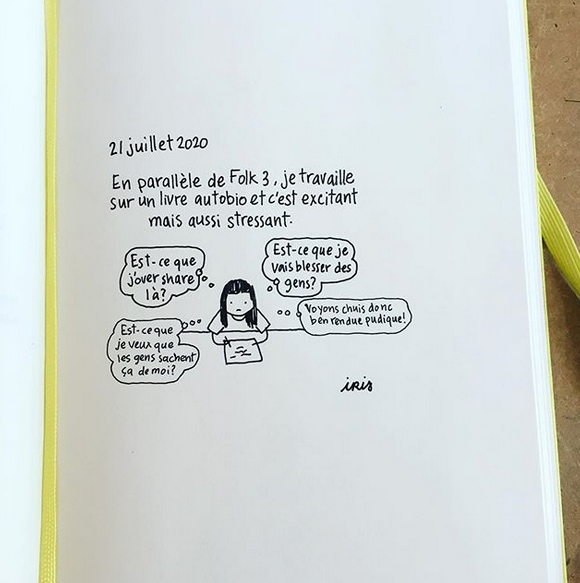 21 juillet 2020
En parallèle de Folk 3, je travaille
sur un livre autobio et c'est excitant
mais aussi stressant.
Est-ce que
j'over share
là?
Est-ce que je
vais blesser des
gens?
Est-ce que
je veux que
les gens sachent
ça de moi?
Voyons chuis donc
ben rendue pudique!
iris